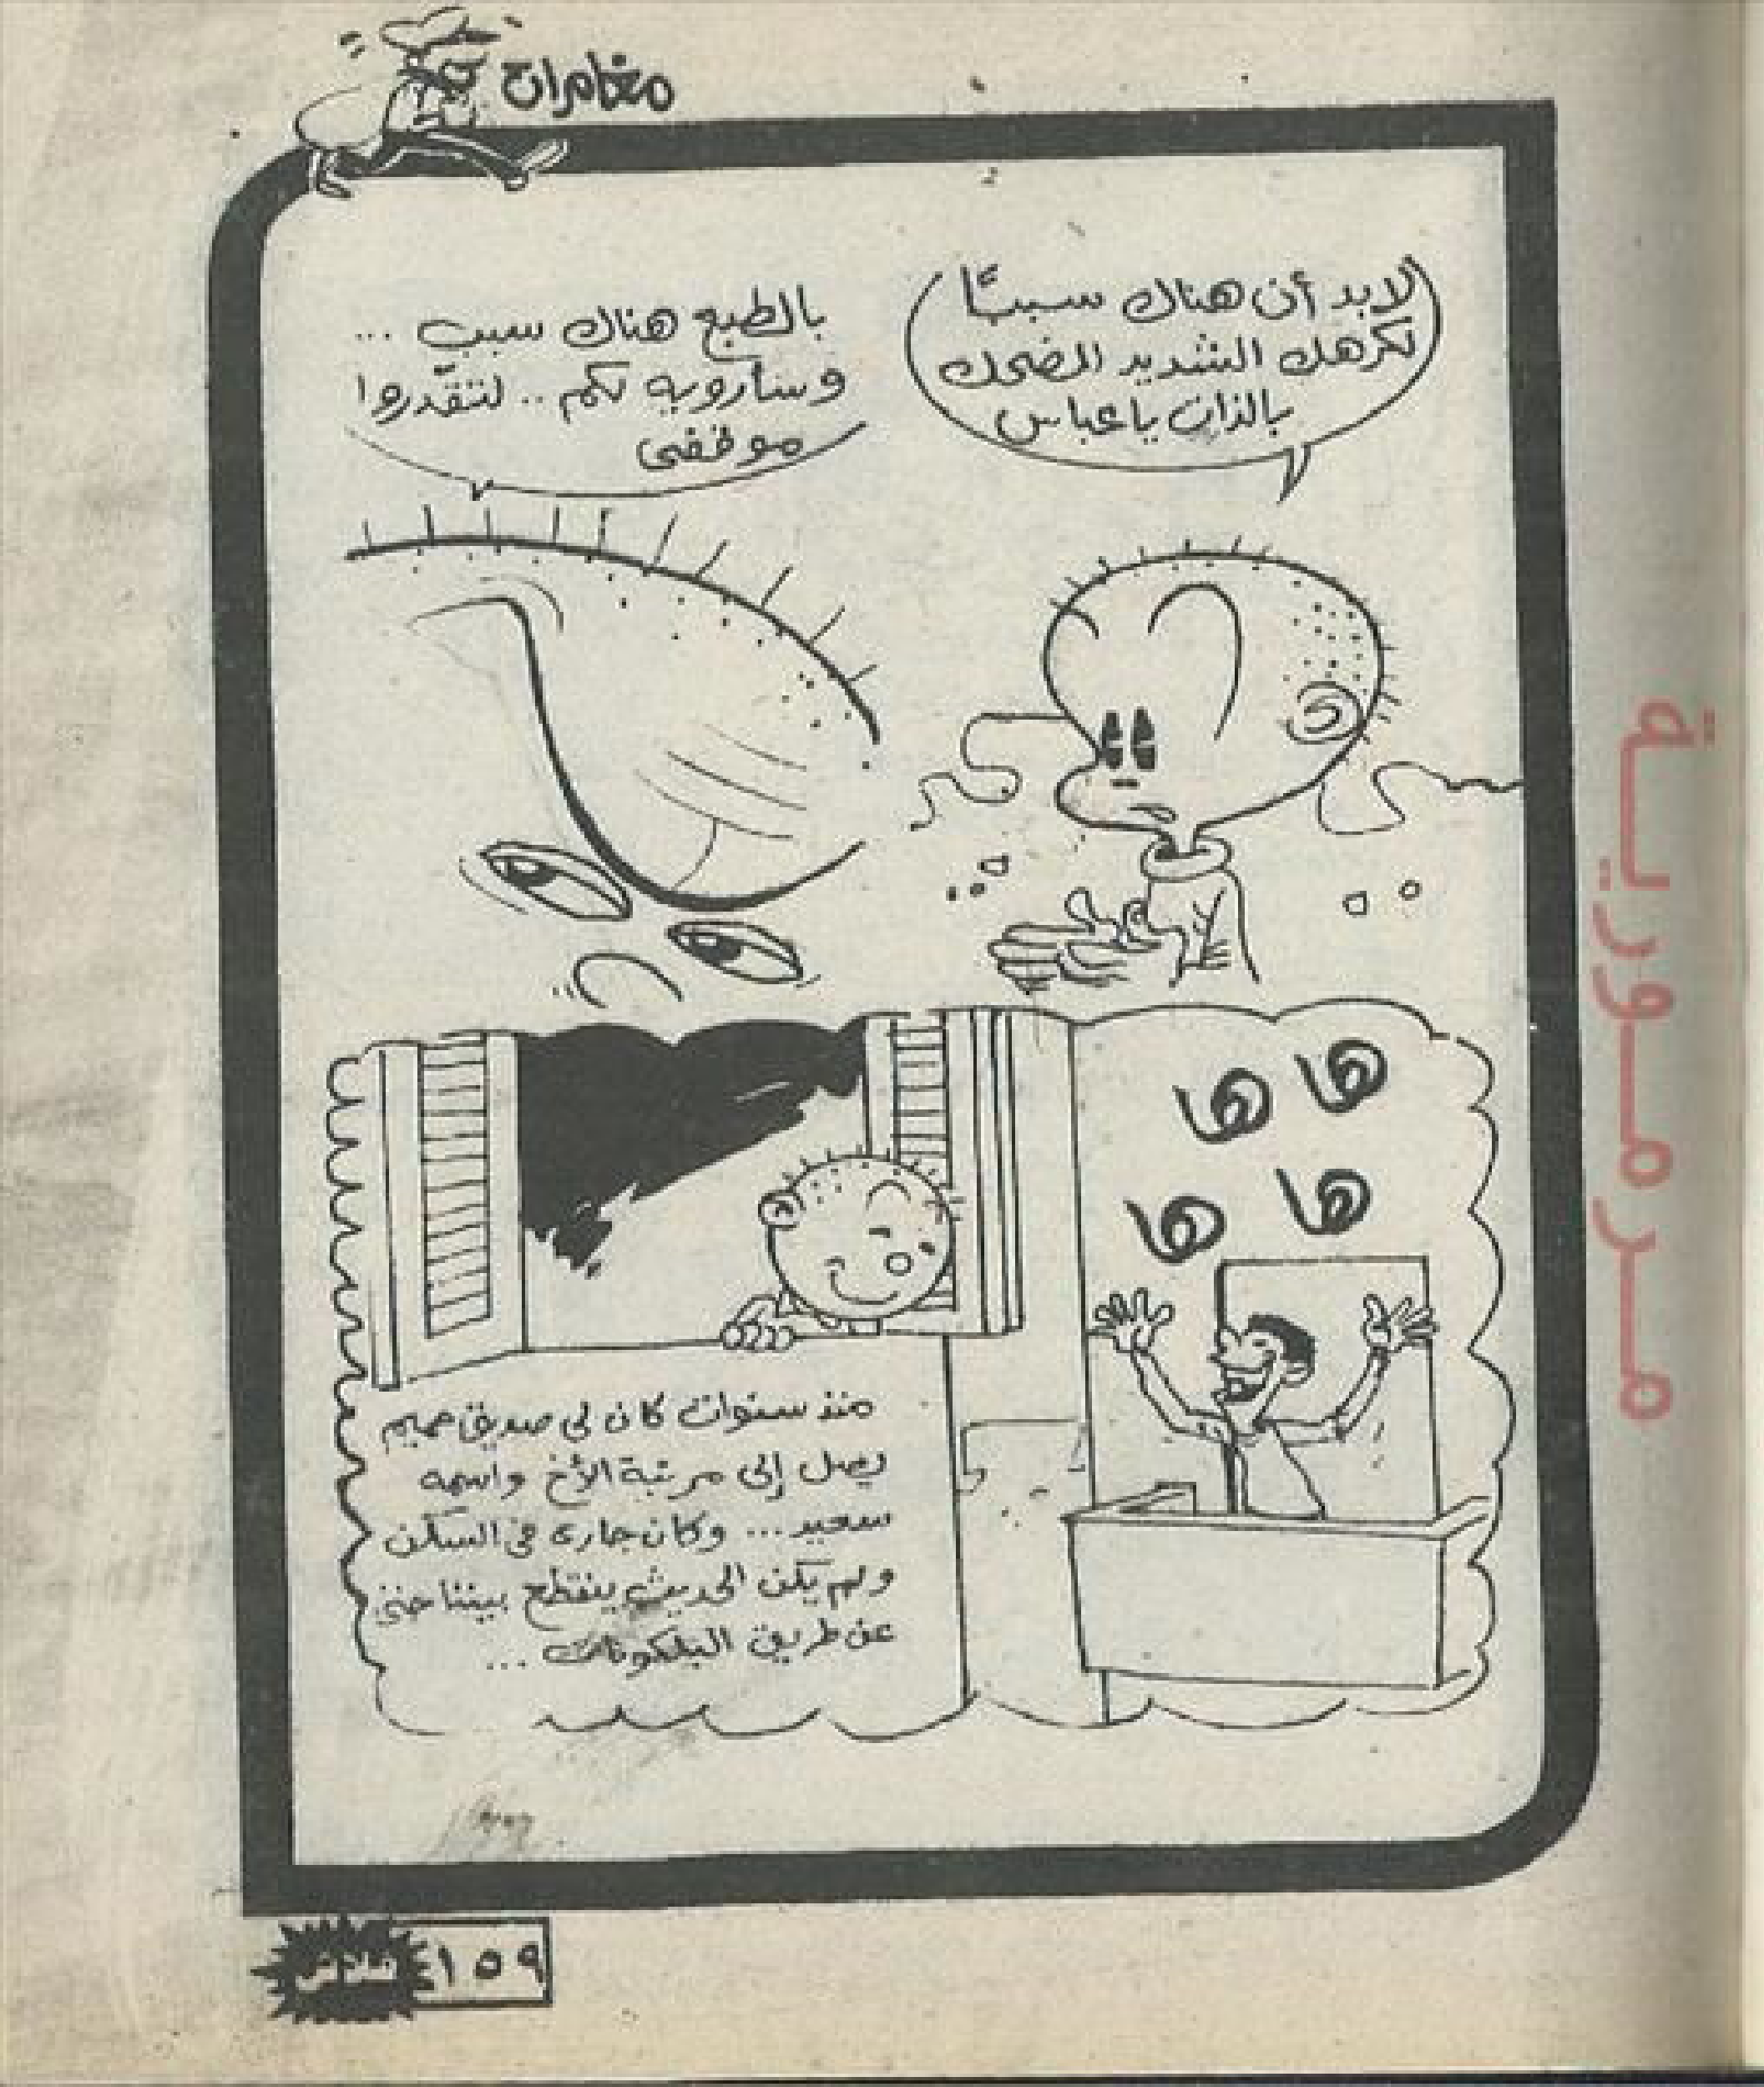 مغامرات
لابد أن هناك سببًا
لكرهك الشديد للضحك
بالذات يا عباس
بالطبع هناك سبب ...
وسأرويه لكم .. لتقدروا
موقفى
ها ها
ها ها
منذ سنوات كان لي صديق حميم
يصل إلى مرتبة الأخ واسمه
سعيد ... وكان جارى فى السكن
ولم يكن الحديث ينقطع بيننا حتى
عن طريق البلكونات ...
١٥٩
فلاش
مرمورية